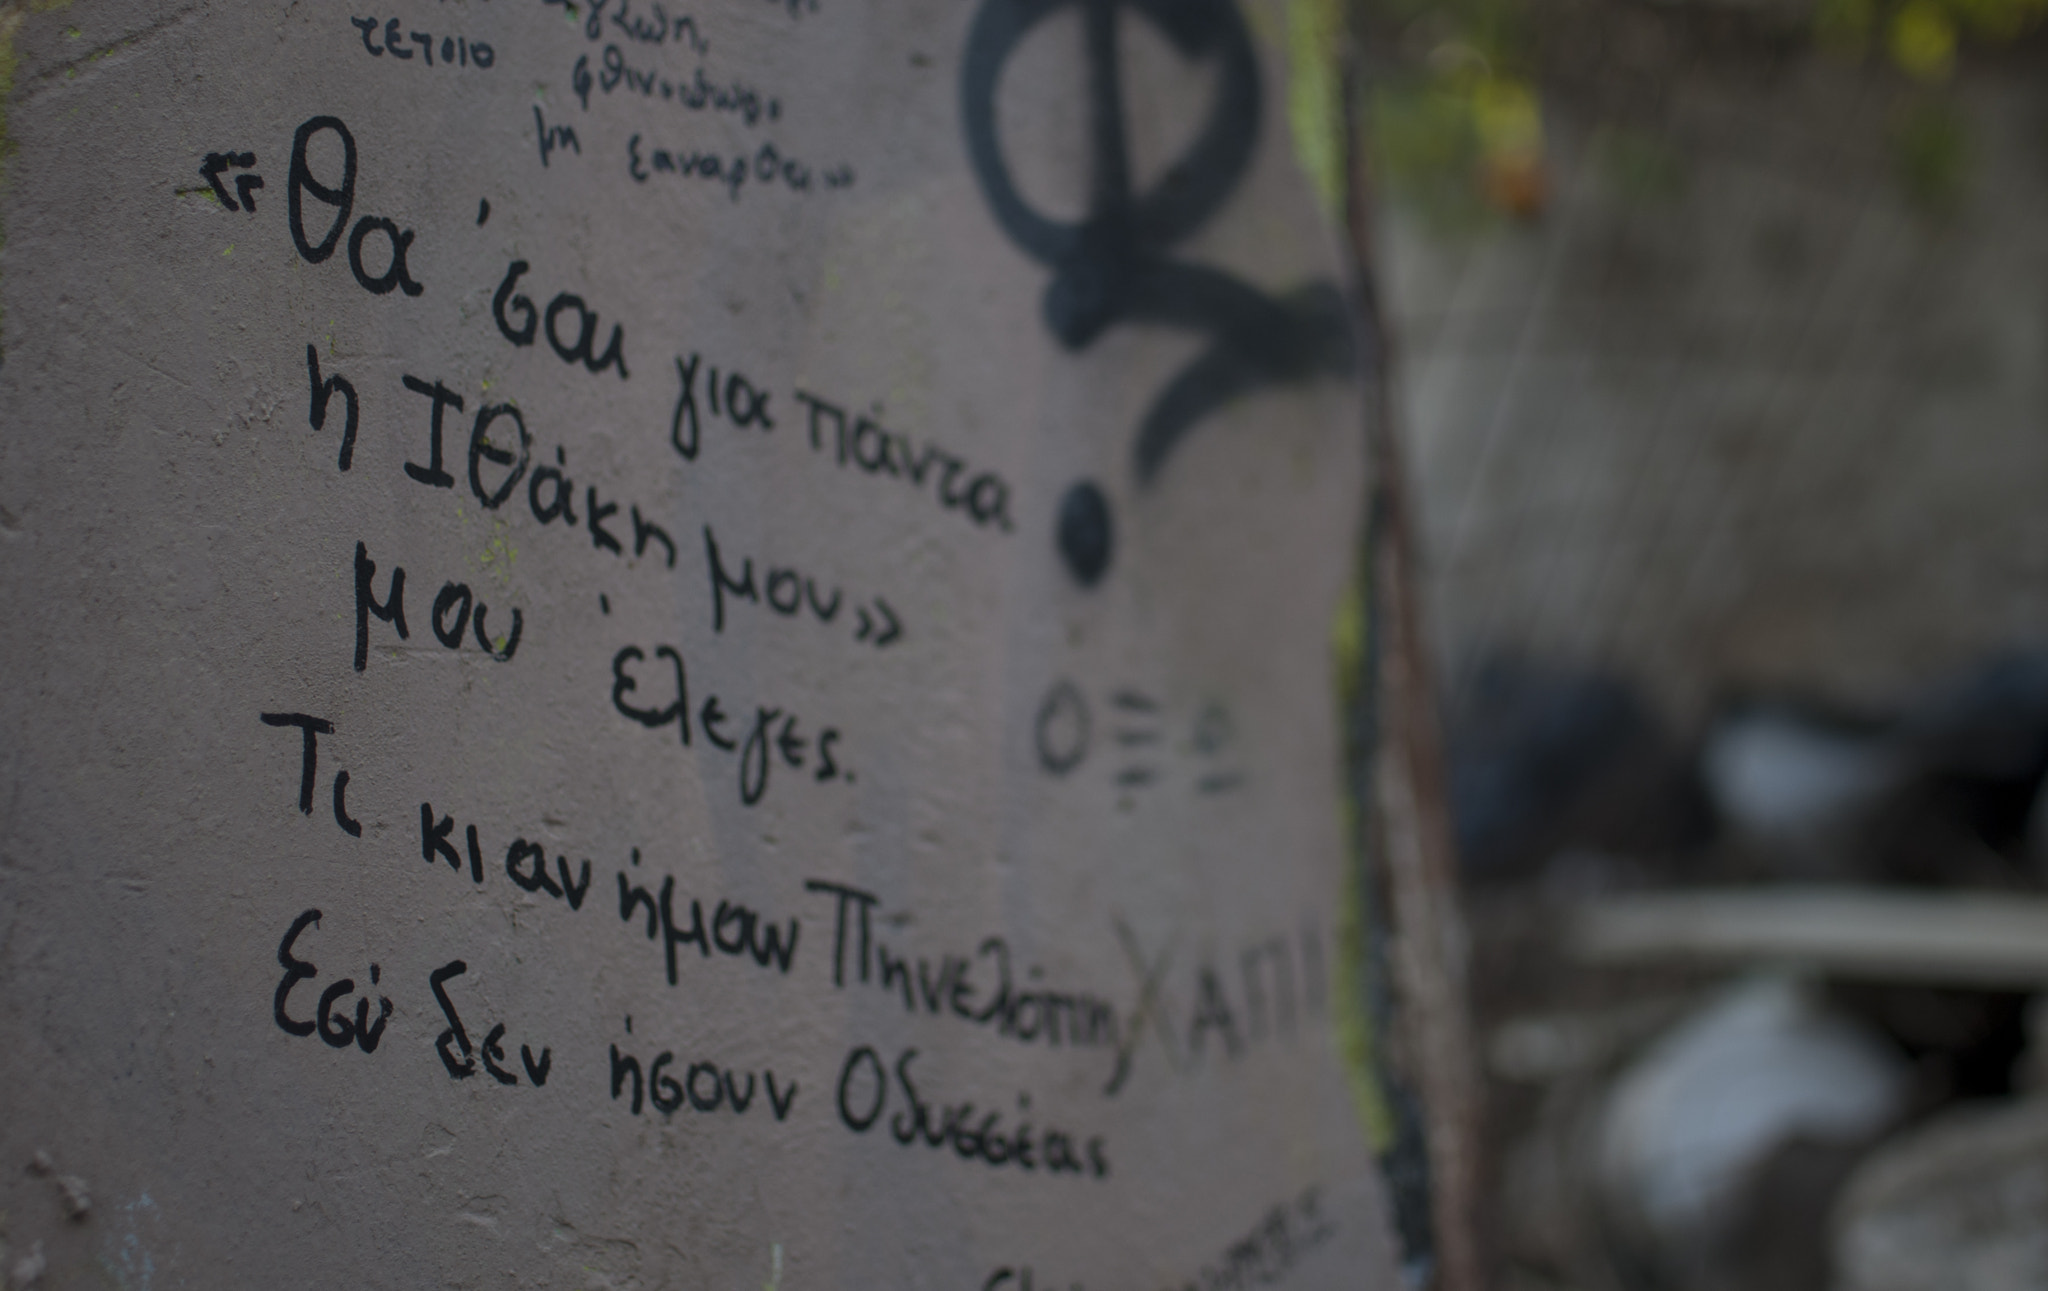 τέτοιο
φθινόπωρο
μη ξαναρθει»
«Θα 'σαι για πάντα
η Ιθάκη μου»
μου 'έλεγες.
Τι κι αν ήμουν Πηνελόπη,
Εσύ δεν ήσουν Οδυσσέας
ΧΑΠΙ